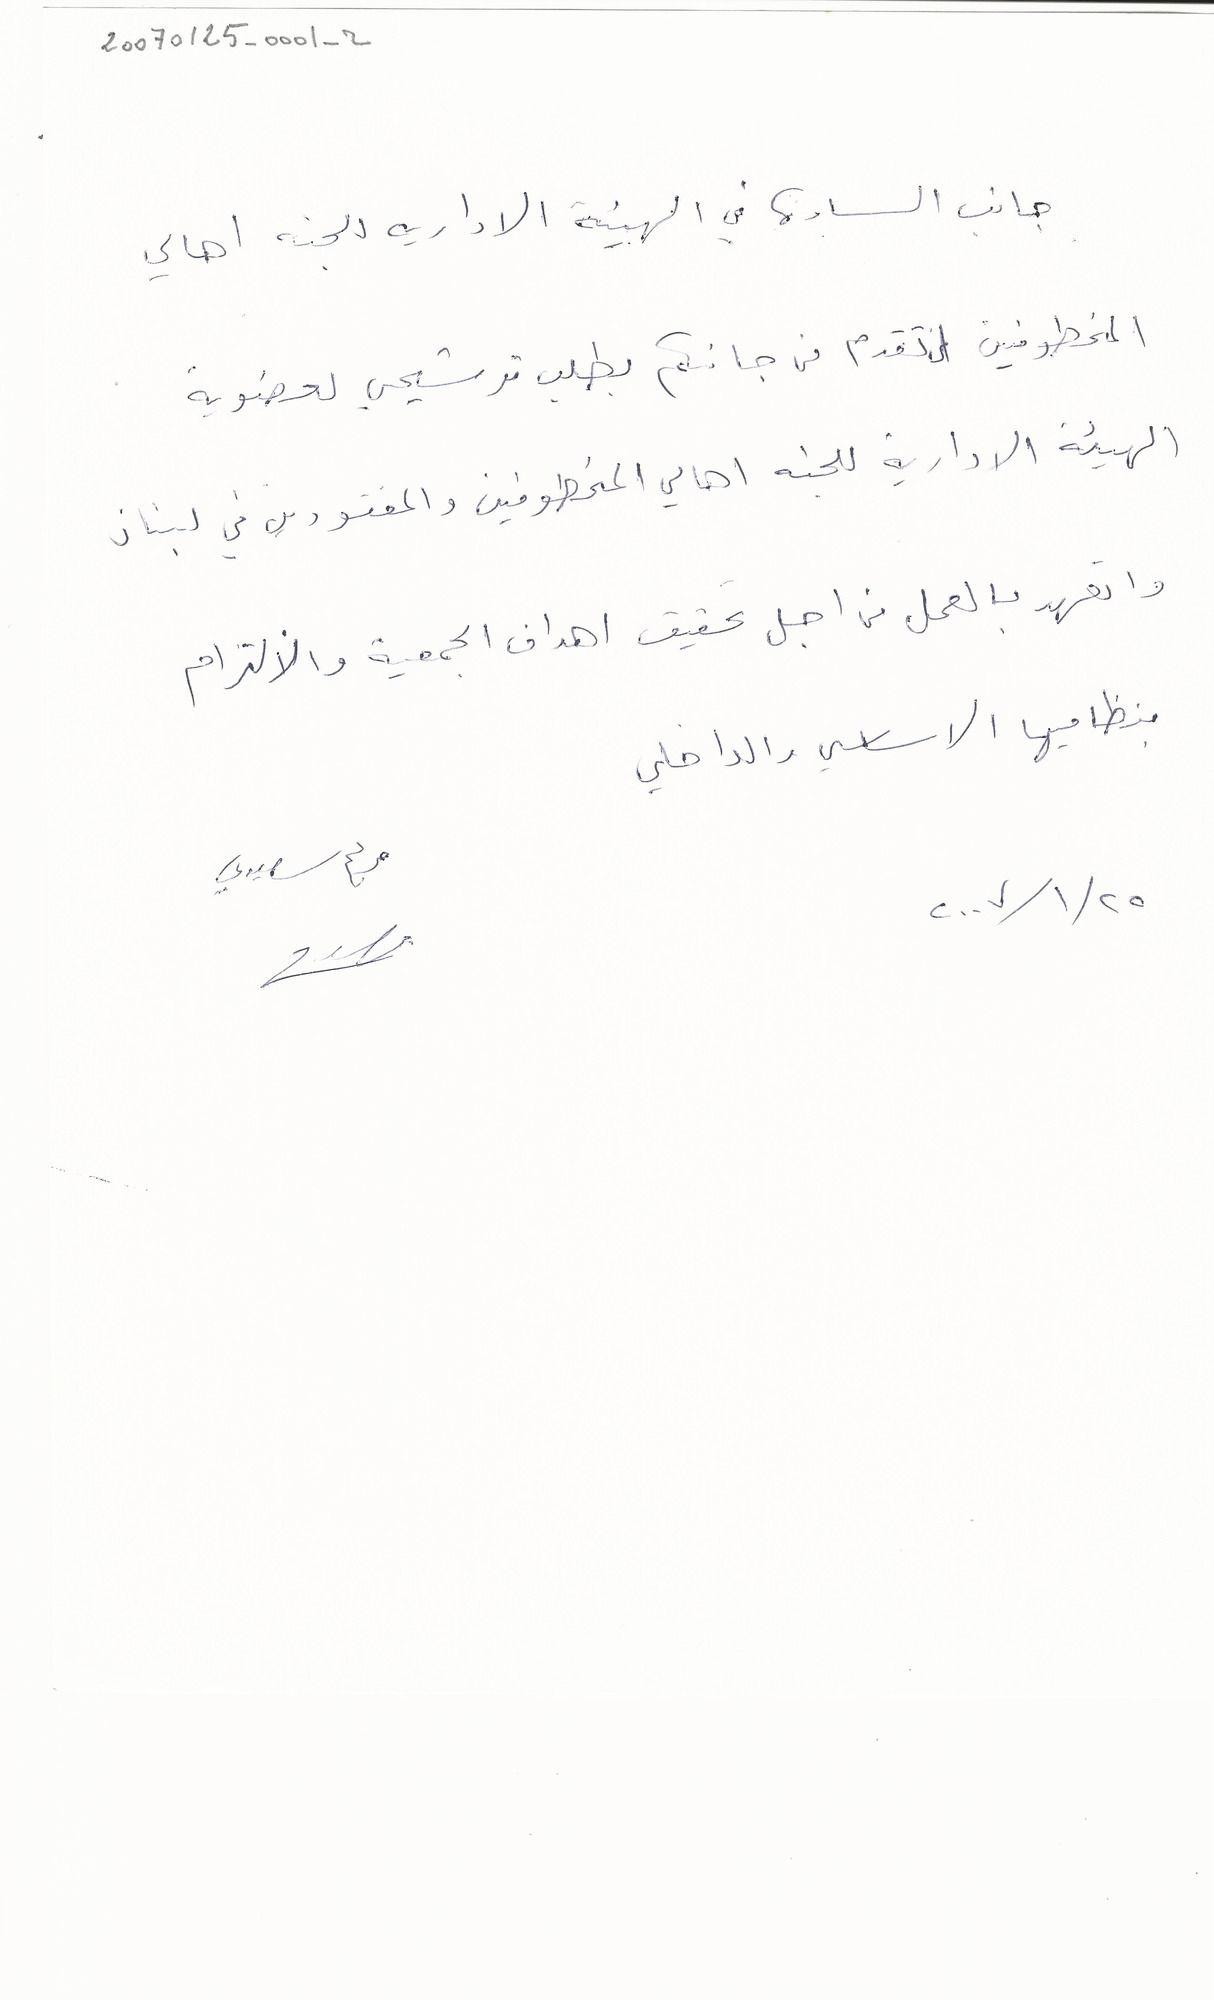 20070125-0001-2
جانب السادة في الهيئة الادارية للجنة اهالي
المخطوفين اتقدم من جانبكم بطلب ترشيحي لعضوية
الهيئة الادارية للجنة اهالي المخطوفين والمفقودين في لبنان
واتعهد بالعمل من اجل تحقيق اهداف الجمعية والالتزام
بنظاميها الاساسي والداخلي
سعيدي
٢٥/١/٢٠٠٧